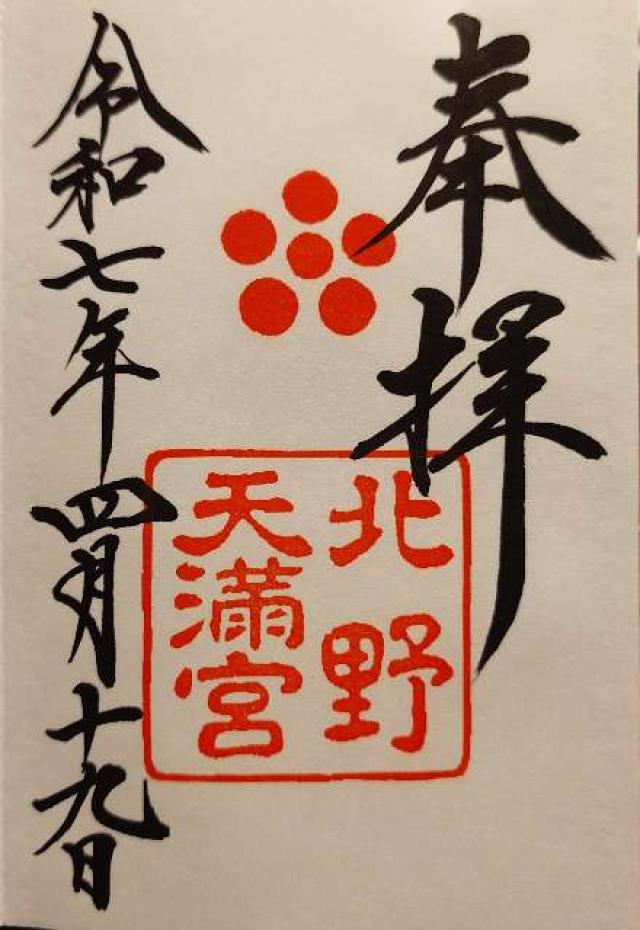 奉拝
北野
天満宮
令和七年四月十九日